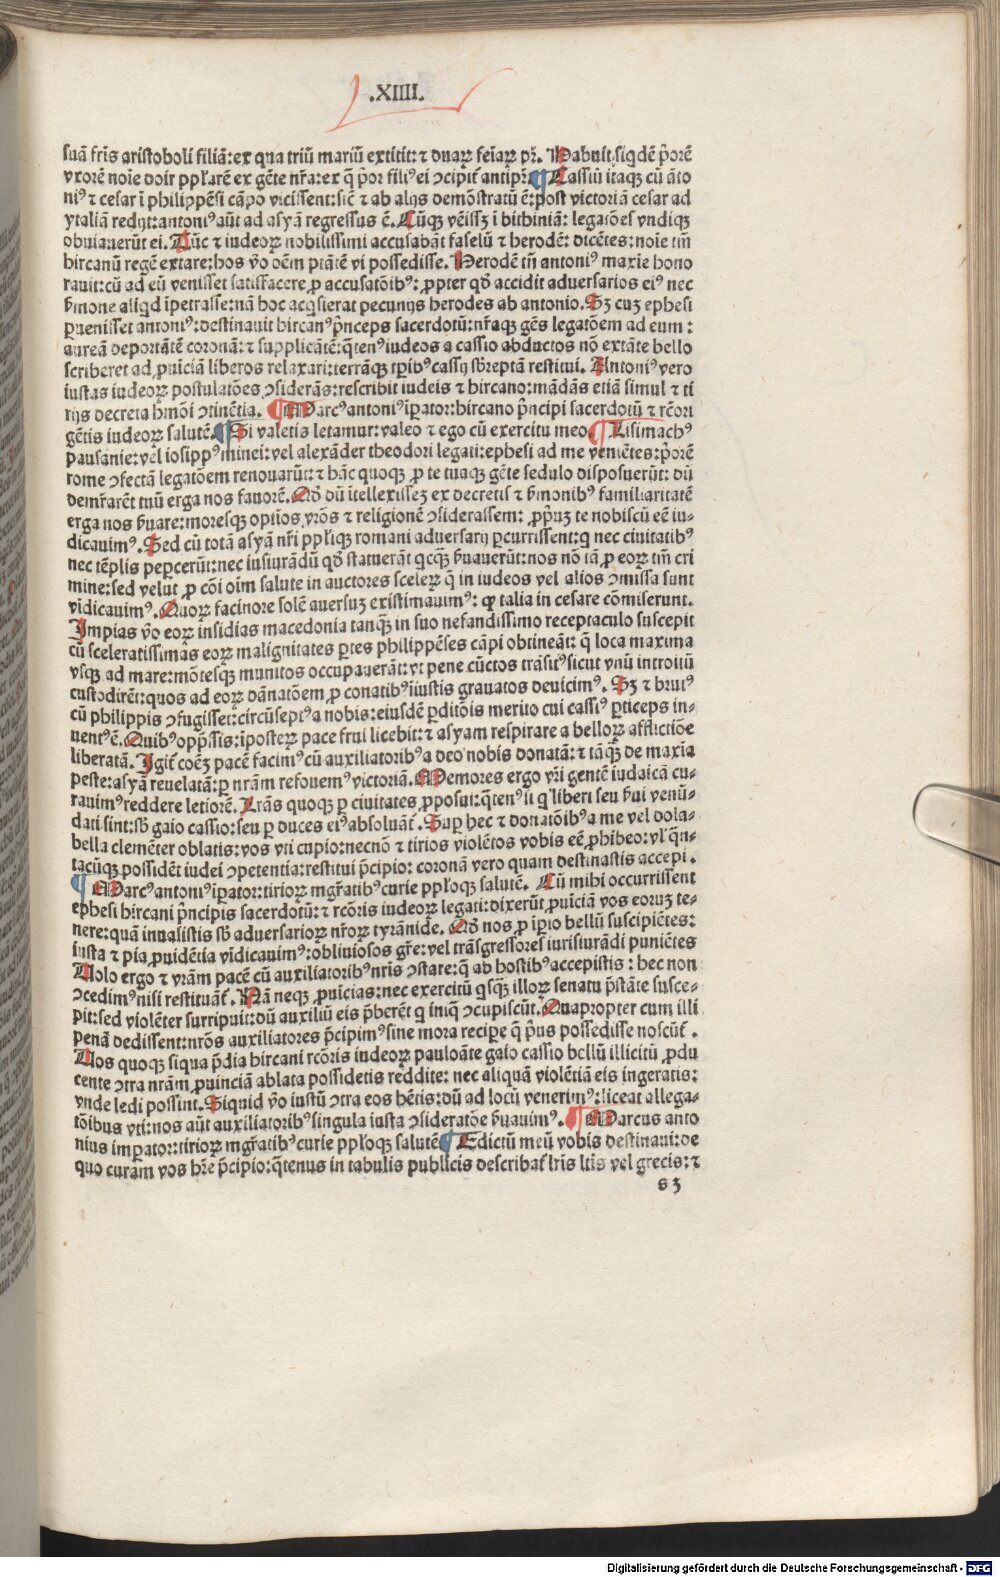 .XIIII.
suā fris aristoboli filiā: ex qua triū mariū extitit: ⁊ duaꝝ feīaꝝ pr̄. Habuit siqdē p̄orē
vxorē noīe doir ppłarē ex gēte nr̄a: ex q̄ p̄or fili⁹ ei ꝯcipit̄ antipr̄. ¶ Cassiū itaqꝫ cū āto
ni⁹ ⁊ cesar ī philippēsi cāpo vicissent: sic̄ ⁊ ab alijs demōstratū ē: post victoriā cesar ad
ytaliā redijt: antoni⁹ aūt ad asyā regressus ē. Cūqꝫ vēissꝫ ī bithiniā: legatōes vndiqꝫ
obuiauerūt ei. Tūc ⁊ iudeoꝝ nobilissimi accusabāt faselū ⁊ herodē: dicētes: noīe tm̄
hircanū regē extare: hos v̄o oēm ptātē vi possedisse. Herodē tn̄ antoni⁹ maxīe hono
rauit: cū ad eū venisset satisfacere ꝓ accusatōib⁹: ꝓpter qd̄ accidit aduersarios ei⁹ nec
ẜmone aliqd īpetrasse: nā hoc acqsierat pecunijs herodes ab antonio. Sꝫ cuꝫ ephesi
ꝑuenisset antoni⁹: destinauit hircan⁹ p̄nceps sacerdotū: nr̄aqꝫ gēs legatōem ad eum:
aureā deportātē coronā: ⁊ supplicātē: q̄ten⁹ iudeos a cassio abductos nō extāte bello
scriberet ad ꝓuīciā liberos relaxari: terrāqꝫ tꝑib⁹ cassij sb̄reptā restitui. Antoni⁹ vero
iustas iudeoꝝ postulatōes ꝯsiderās: rescribit iudeis ⁊ hircano: mādās etiā simul ⁊ ti
rijs decreta hm̄oi ꝯtinētia. ¶ Marc⁹ antoni⁹ īꝑator: hircano p̄ncipi sacerdotū ⁊ rc̄ori
gētis iudeoꝝ salutē. ¶ Si valetis letamur: valeo ⁊ ego cū exercitu meo. ¶ Lisimach⁹
pausanie: vel iosipp⁹ minei: vel alexāder theodori legati: ephesi ad me veniētes: p̄orē
rome ꝯfectā legatōem renouarūt: ⁊ hāc quoqꝫ ꝓ te tuaqꝫ gēte sedulo disposuerūt: dū
demr̄arēt tuū erga nos fauorē. Qd̄ dū ītellexisseꝫ ex decretis ⁊ ẜmonib⁹ familiaritatē
erga nos ẜuare: moresqꝫ optīos vr̄os ⁊ religionē ꝯsiderassem: ꝓpriuꝫ te nobiscū eē iu-
dicauim⁹. Sed cū totā asyā nr̄i pplīqꝫ romani aduersarij ꝑcurrissent: q nec ciuitatib⁹
nec tēplis pepcerūt: nec iusiurādū qd̄ statuerāt qcqꝫ ẜuauerūt: nos nō iā ꝓ eoꝝ tm̄ cri
mine: sed velut ꝓ cōi oīm salute in auctores sceleꝝ q̄ in iudeos vel alios ꝯmissa sunt
vīdicauim⁹. Quoꝝ facinore solē auersuꝫ existimauim⁹: qꝛ talia in cesare cōmiserunt.
Impias v̄o eoꝝ insidias macedonia tanqꝫ in suo nefandissimo receptaculo suscepit
cū sceleratissimās eoꝝ malignitates ꝑtes philippēses cāpi obtineāt: q̄ loca maxima
vsqꝫ ad mare: mōtesqꝫ munitos occupauerāt: vt pene cūctos trāsit⁹ sicut vnū introitū
custodirēt: quos ad eoꝝ dānatōem ꝓ conatib⁹ iiustis grauatos deuicim⁹. Sꝫ ⁊ brut⁹
cū philippis ꝯfugisset: circūsept⁹ a nobis: eiusdē ꝑditōis merito cui cassi⁹ ꝑticeps in-
uent⁹ ē. Quib⁹ opp̄ssis: īposteꝝ pace frui licebit: ⁊ asyam respirare a belloꝝ afflictiōe
liberatā. Igit̄ coēꝫ pacē facim⁹ cū auxiliatorib⁹ a deo nobis donatā: ⁊ tāqꝫ de maxīa
peste: asyā reuelatā: ꝑ nr̄am refouem⁹ victoriā. Memores ergo vr̄i gentē iudaicā cu-
rauim⁹ reddere letiorē. Lr̄as quoqꝫ ꝑ ciuitates ꝓposui: q̄ten⁹ ii q̄ liberi seu ẜui venū-
dati sint: sb̄ gaio cassio: seu ꝑ duces ei⁹ absoluāt̄. Suꝑ hec ⁊ donatōib⁹ a me vel dola-
bella clemēter oblatis: vos vti cupio: necnō ⁊ tirios violētos vobis eē ꝓhibeo: vł q̄n-
tacūqꝫ possidēt iudei ꝯpetentia: restitui p̄cipio: coronā vero quam destinastis accepi.
¶ Marc⁹ antoni⁹ īꝑator: tirioꝝ mgr̄atib⁹ curie ppłoqꝫ salutē. Cū mihi occurrissent
ephesi hircani p̄ncipis sacerdotū: ⁊ rc̄oris iudeoꝝ legati: dixerūt ꝓuīciā vos eoruꝫ te-
nere: quā inuasistis sb̄ aduersarioꝝ nr̄oꝝ tyrānide. Qd̄ nos ꝓ īꝑio bellū suscipiētes:
iusta ⁊ pia ꝓuidētia vīdicauim⁹: obliuiosos gr̄e: vel trāsgressores iurisiurādi puniētes
Uolo ergo ⁊ vr̄am pacē cū auxiliatorib⁹ nr̄is ꝯstare: q̄ ab hostib⁹ accepistis: hec non
ꝯcedim⁹ nisi restituāt̄. Nā neqꝫ ꝓuīcias: nec exercitū qsqꝫ illoꝝ senatu p̄stāte susce-
pit: sed violēter surripuit: dū auxiliū eis p̄berēt q iniq̄ ꝯcupiscūt. Quapropter cum illi
penā dedissent: nr̄os auxiliatores p̄cipim⁹ sine mora recipe q̄ p̄us possedisse noscūt̄.
Uos quoqꝫ siqua p̄dia hircani rc̄oris iudeoꝝ pauloāte gaio cassio bellū illicitū ꝓdu
cente ꝯtra nr̄am ꝓuinciā ablata possidetis reddite: nec aliquā violētiā eis ingeratis:
vnde ledi possint. Siquid v̄o iustū ꝯtra eos hētis: dū ad locū venerim⁹: liceat allega-
tōibus vti: nos aūt auxiliatorib⁹ singula iusta ꝯsideratōe ẜuauim⁹. ¶ Marcus anto
nius imꝑator: tirioꝝ mgr̄atib⁹ curie ppłoqꝫ salutē ¶ Edictū meū vobis destinaui: de
quo curam vos hr̄e p̄cipio: q̄tenus in tabulis publicis describat̄ lr̄is ltīs vel grecis: ⁊
s 3
Digitalisierung gefördert durch die Deutsche Forschungsgemeinschaft - DFG